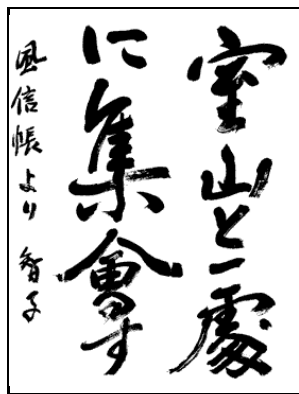 室山と一處
に集會す
風信帳より 智子